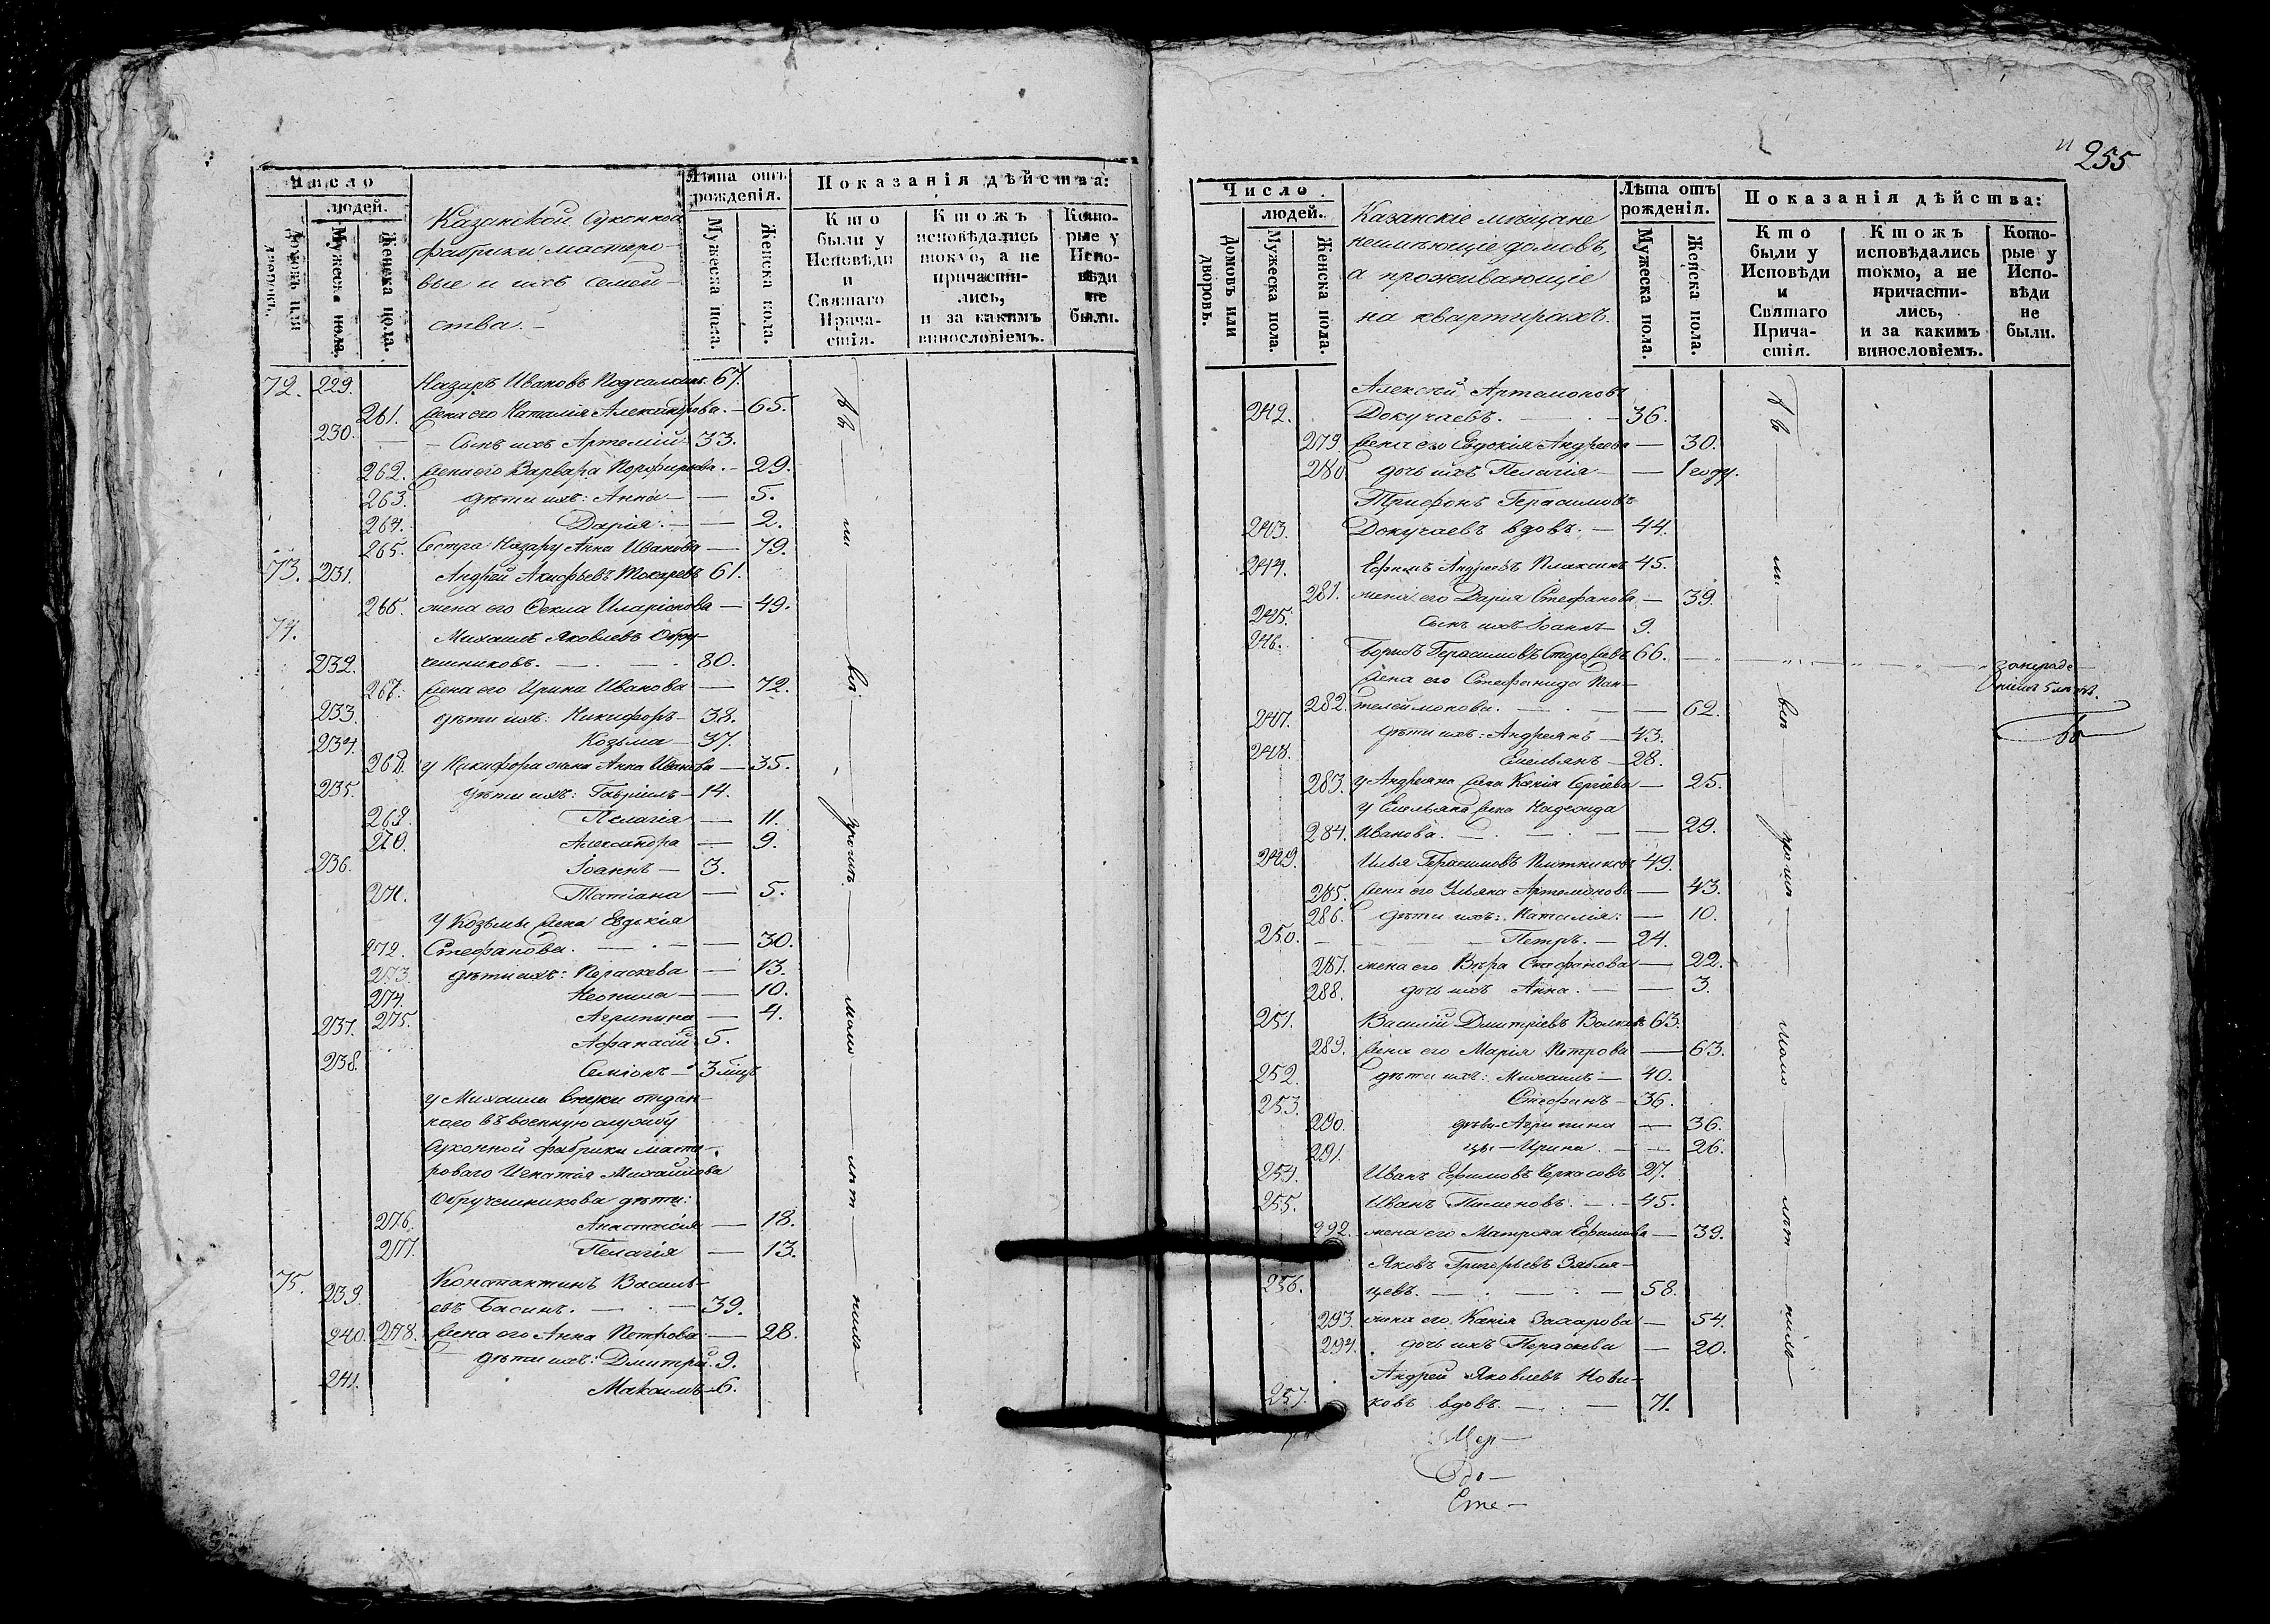 Число
людей.
Домовъ или дворовъ.
Мужеска пола.
Женска пола.
Казанской Суконной
фабрики мастеро-
вые и ихъ семей-
ства.
Лѣта отъ рожденія.
Мужеска пола.
Женска пола.
Показанія дѣйства:
Кто были у Исповѣди и Святаго Прича-стія.
Ктожъ исповѣдались токмо, а не причасти-лись, и за какимъ винословіемъ.
Кото-рые у Испо-вѣди не были.
72. 229. Назаръ Ивановъ 67.
261. жена его Наталія Александрова. — 65.
230. — Сынъ ихъ Артемій 33.
262. жена его Варвара Порфирьева. — 29.
263. дѣти ихъ: Анна — — 5.
264. Дарія. — — 2.
265. Сестра Назару Анна Иванова — 79.
73. 231. Андрей Акифьевъ Токаревъ 61.
266. жена его Ѳекла Иларіонова — 49.
74. Михаилъ Яковлевъ Обру-
232. чешниковъ. — . — . 80.
267. жена его Ирина Иванова — 72.
233. дѣти ихъ: Никифоръ — 38.
234. Козьма — 37.
268. у Никифора жена Анна Иванова — 35.
235. дѣти ихъ: Гавріилъ — 14.
269. Пелагія — 11.
270. Александра — 9.
236. Іоаннъ — 3.
271. Татіана — 5.
у Козьмы жена Евдокія
272. Стефанова. — . — — 30.
273. дѣти ихъ: Параскева — 13.
274. Неонила — — 10.
275. Агрипина — 4.
237. Афанасій 5.
238. Семіонъ — 3 мцъ
у Михаила внуки отдан-
наго въ военную службу
Суконной фабрики масте-
роваго Игнатія Михайлова
Обручешникова дѣти:
276. Анастасія — 18.
277. Пелагія — 13.
75. Константинъ Василь-
239. евъ Басинъ. — . — 39.
240. 278. жена его Анна Петрова — 28.
дѣти ихъ: Дмитрій. 9.
241. Максимъ 6.
255
Число.
людей.
Домовъ или дворовъ.
Мужеска пола.
Женска пола.
Казанскіе мѣщане
неимѣющіе домовъ,
а проживающіе
на квартирахъ.
Лѣта отъ рожденія.
Мужеска пола.
Женска пола.
Показанія дѣйства:
Кто были у Исповѣди и Святаго Прича-стія.
Ктожъ исповѣдались токмо, а не причасти-лись, и за какимъ винословіемъ.
Кото-рые у Испо-вѣди не были.
Алексѣй Артемоновъ
242. Докучаевъ. — . — 36.
279. жена его Евдокія Андреева — 30.
280 дочь ихъ Пелагія — — 1 году.
Трифонъ Герасимовъ
243. Докучаевъ вдовъ. — 44.
244. Ефимъ Андреевъ Плаксинъ 45.
281. жена его Дарія Стефанова — 39.
245. Сынъ ихъ Іоаннъ — 9.
246. Борисъ Герасимовъ 66.
жена его Стефанида Пан-
282. телеймонова. — . — — 62.
247. дѣти ихъ: Андреянъ — 43.
248. Емельянъ — 28.
283. у Андреяна жена Ксенія Сергіева — 25.
у Емельяна жена Надежда
284. Иванова. — . — . — — 29.
249. Илья Герасимовъ Плотниковъ 49.
285. жена его Ульяна Артемонова — 43.
286. дѣти ихъ: Наталія: — 10.
250. — Петръ. — 24.
287. жена его Вѣра Стефанова — 22.
288. дочь ихъ Анна. — — 3.
251. Василій Дмитріевъ Волковъ 63.
289. жена его Марія Петрова — 63.
252. дѣти ихъ: Михаилъ — 40.
253. Стефанъ — 36.
290. дѣви- Агрипина — 36.
291. цы — Ирина. — — 26.
254. Иванъ Ефимовъ Черкасовъ 27.
255. Иванъ Пименовъ. — . — 45.
292. жена его Матрона Ефимова — 39.
Яковъ Григорьевъ Зябля-
256. цевъ. — . — : — 58.
293. жена его Ксенія Захарова — 54.
294. дочь ихъ Параскева — 20.
Андрей Яковлевъ Нови-
257. ковъ вдовъ. — . — 71.